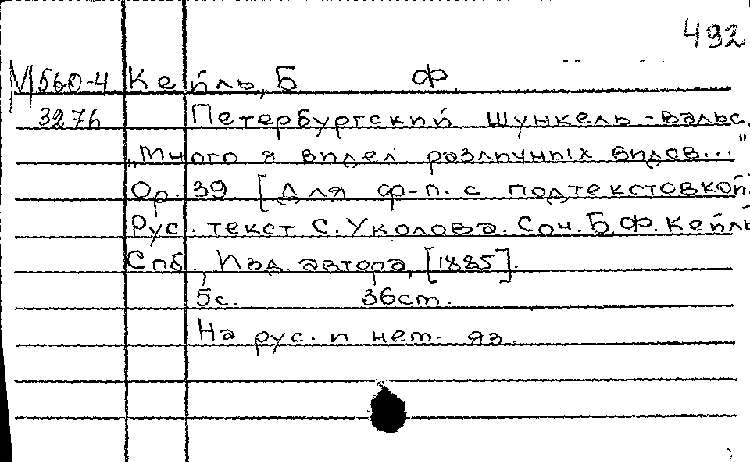 492
М 560-4 Кейль, Б Ф.
3276 Петербургский Шункель-вальс.
„Много я видел различных видов..."
Op. 39 [Для ф-п. с подтекстовкой.
Рус. текст С. Уколова. Соч. Б. Ф. Кейль
Спб, Изд. автора, [1885].
5с. 36ст.
На рус. и нем. яз.